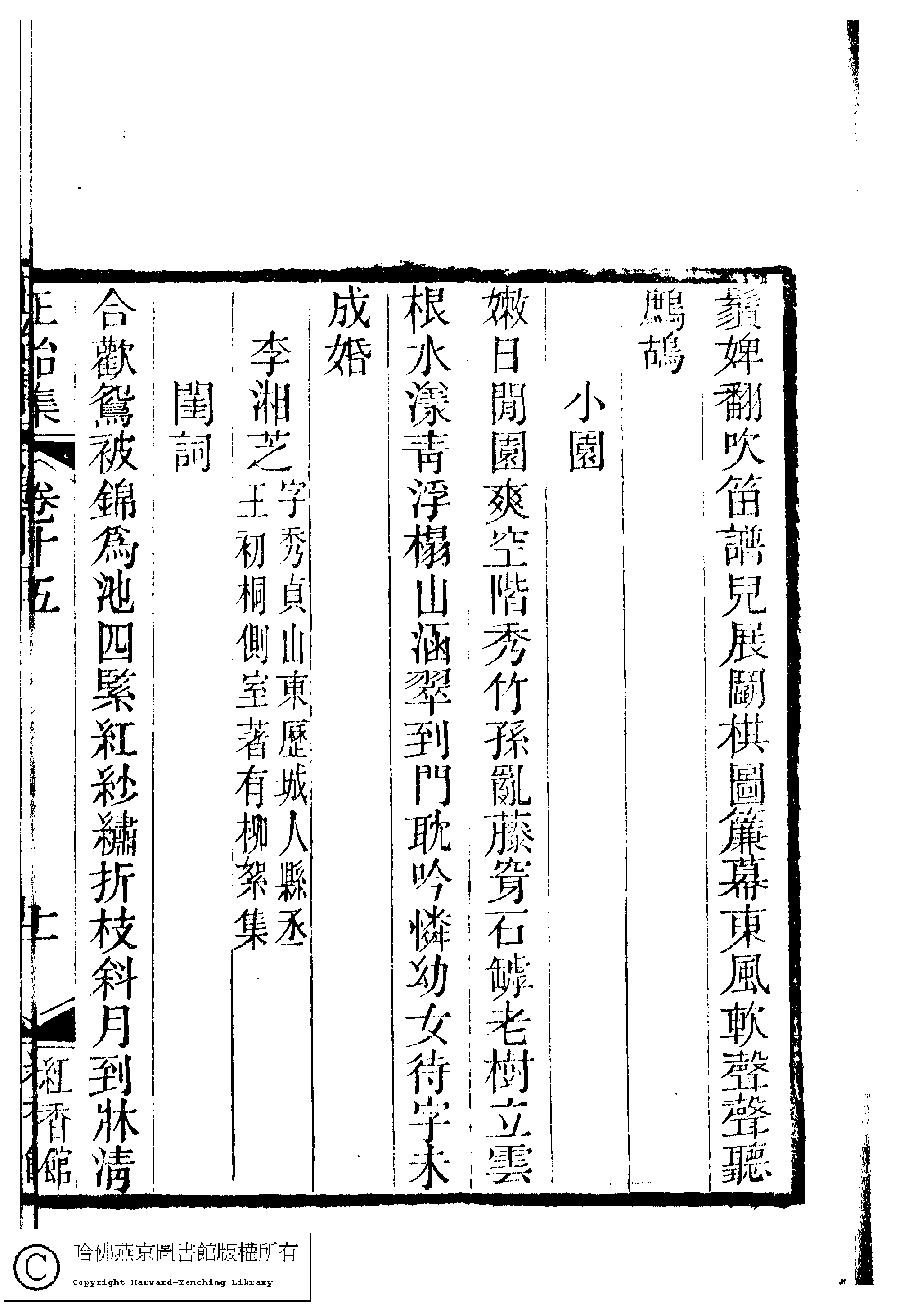 鬟婢翻吹笛譜兒展鬭棋圖簾幕東風軟聲聲聽
鷓鴣
小園
嫩日閒園爽空階秀竹孫亂藤穿石罅老樹立雲
根水漾青浮榻山涵翠到門耽吟憐幼女待字未
成婚
李湘芝字秀貞山東歷城人縣丞
王初桐側室著有柳絮集
閨詞
合歡鴛被錦為池四縏紅紗繡折枝斜月到牀淸
正始集
卷十五
十一
紅香館
哈佛燕京圖書館版權所有
Copyright Harvard-Yenching Library